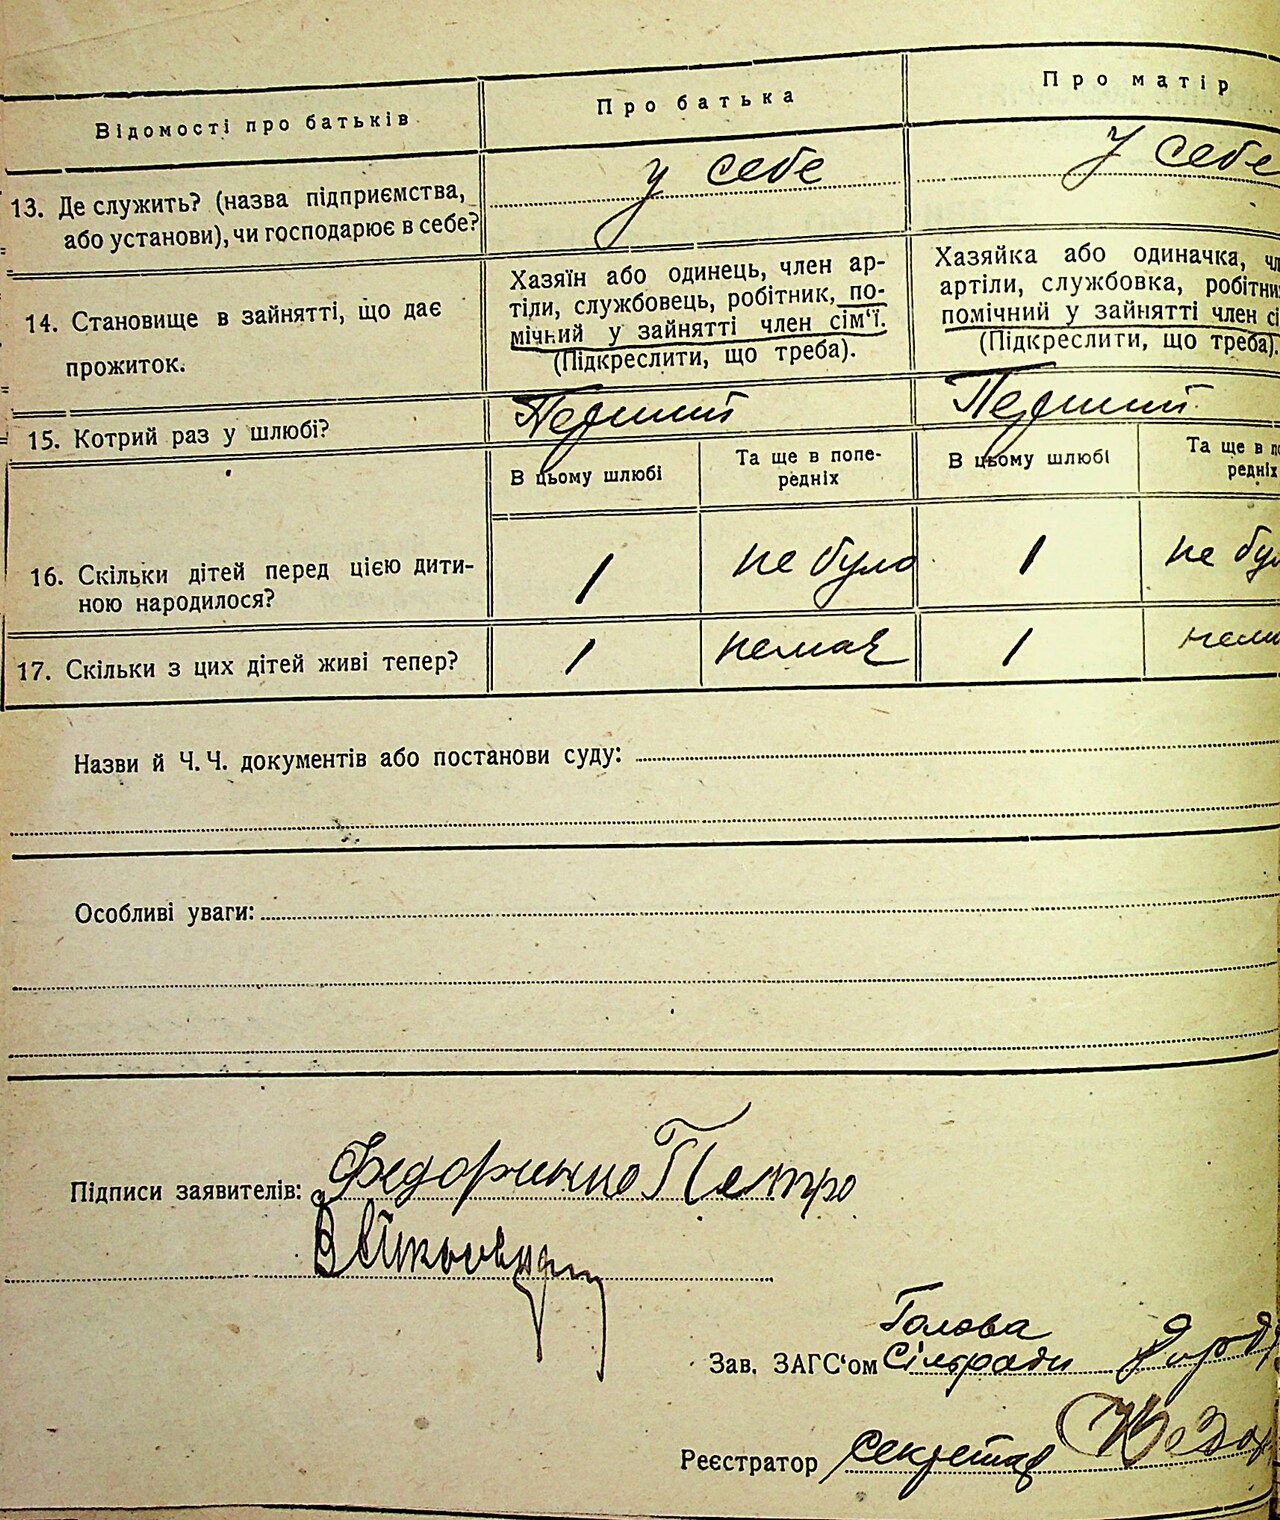 Відомості про батьків
Про батька
Про матір
13. Де служить? (назва підприємства, або установи), чи господарює в себе?
у себе
У себе
14. Становище в зайнятті, що дає прожиток.
Хазяїн або одинець, член ар-
тіли, службовець, робітник, по-
мічний у зайнятті член сім'ї.
(Підкреслити, що треба).
Хазяйка або одиначка,
артіли, службовка,
помічний у зайнятті член
(Підкреслити, що треба).
15. Котрий раз у шлюбі?
Перший
Перший
В цьому шлюбі
Та ще в попе-
редніх
В цьому шлюбі
Та ще в
редніх
16. Скільки дітей перед цією дити-
ною народилося?
1
не було
1
не
17. Скільки з цих дітей живі тепер?
1
немає
1
Назви й Ч. Ч. документів або постанови суду:
Особливі уваги:
Підписи заявителів: Федоринко Петро
Голова
Зав. ЗАГС'ом Сільради
Реєстратор секретар